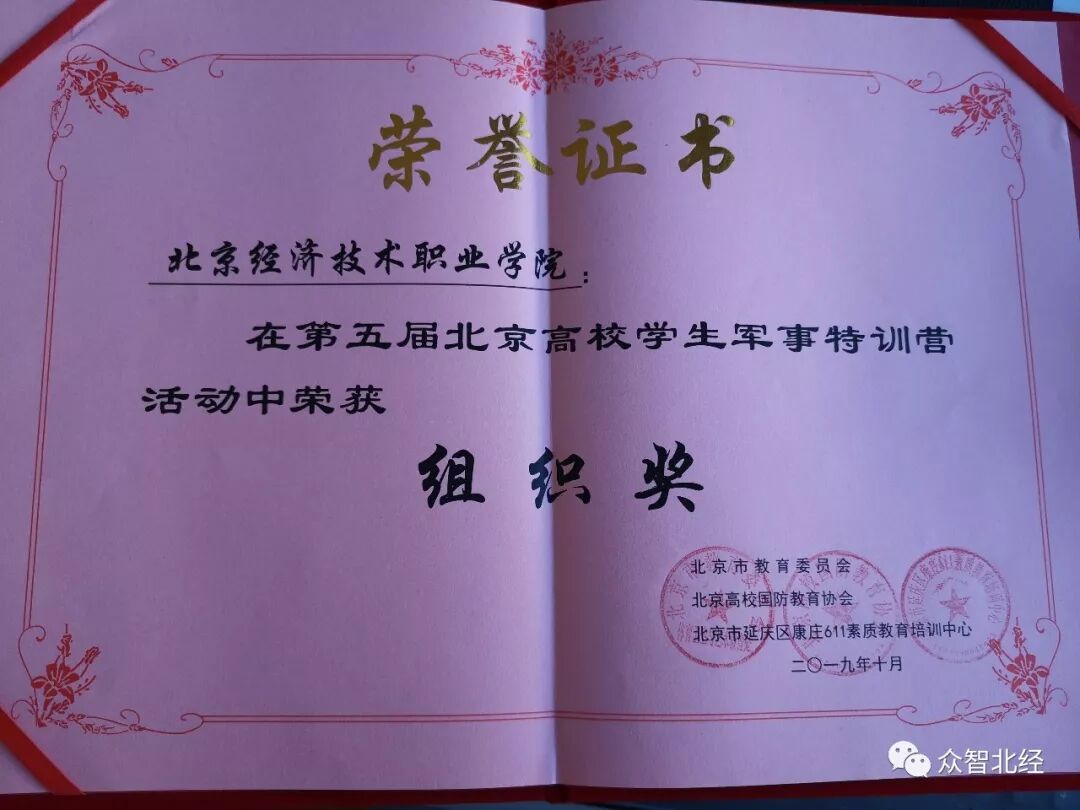 荣誉证书
北京经济技术职业学院：
在第五届北京高校学生军事特训营
活动中荣获
组织奖
北京市教育委员会
北京高校国防教育协会
北京市延庆区康庄611素质教育培训中心
二〇一九年十月
众智北经